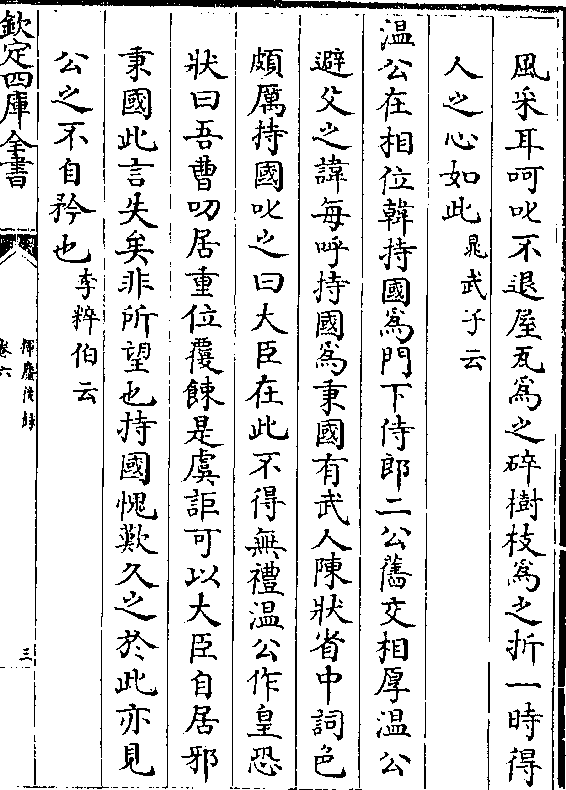 風采耳呵叱不退屋瓦爲之碎樹枝爲之折一時得
人之心如此晁武子云
温公在相位韓持國爲門下侍郎二公舊交相厚温公
避父之諱每呼持國爲秉國有武人陳狀省中詞色
頗厲持國叱之曰大臣在此不得無禮温公作皇恐
狀曰吾曹叨居重位覆餗是虞詎可以大臣自居邪
秉國此言失矣非所望也持國愧歎久之於此亦見
公之不自矜也李粹伯云
欽定四庫全書
揮麈後録
卷六
三